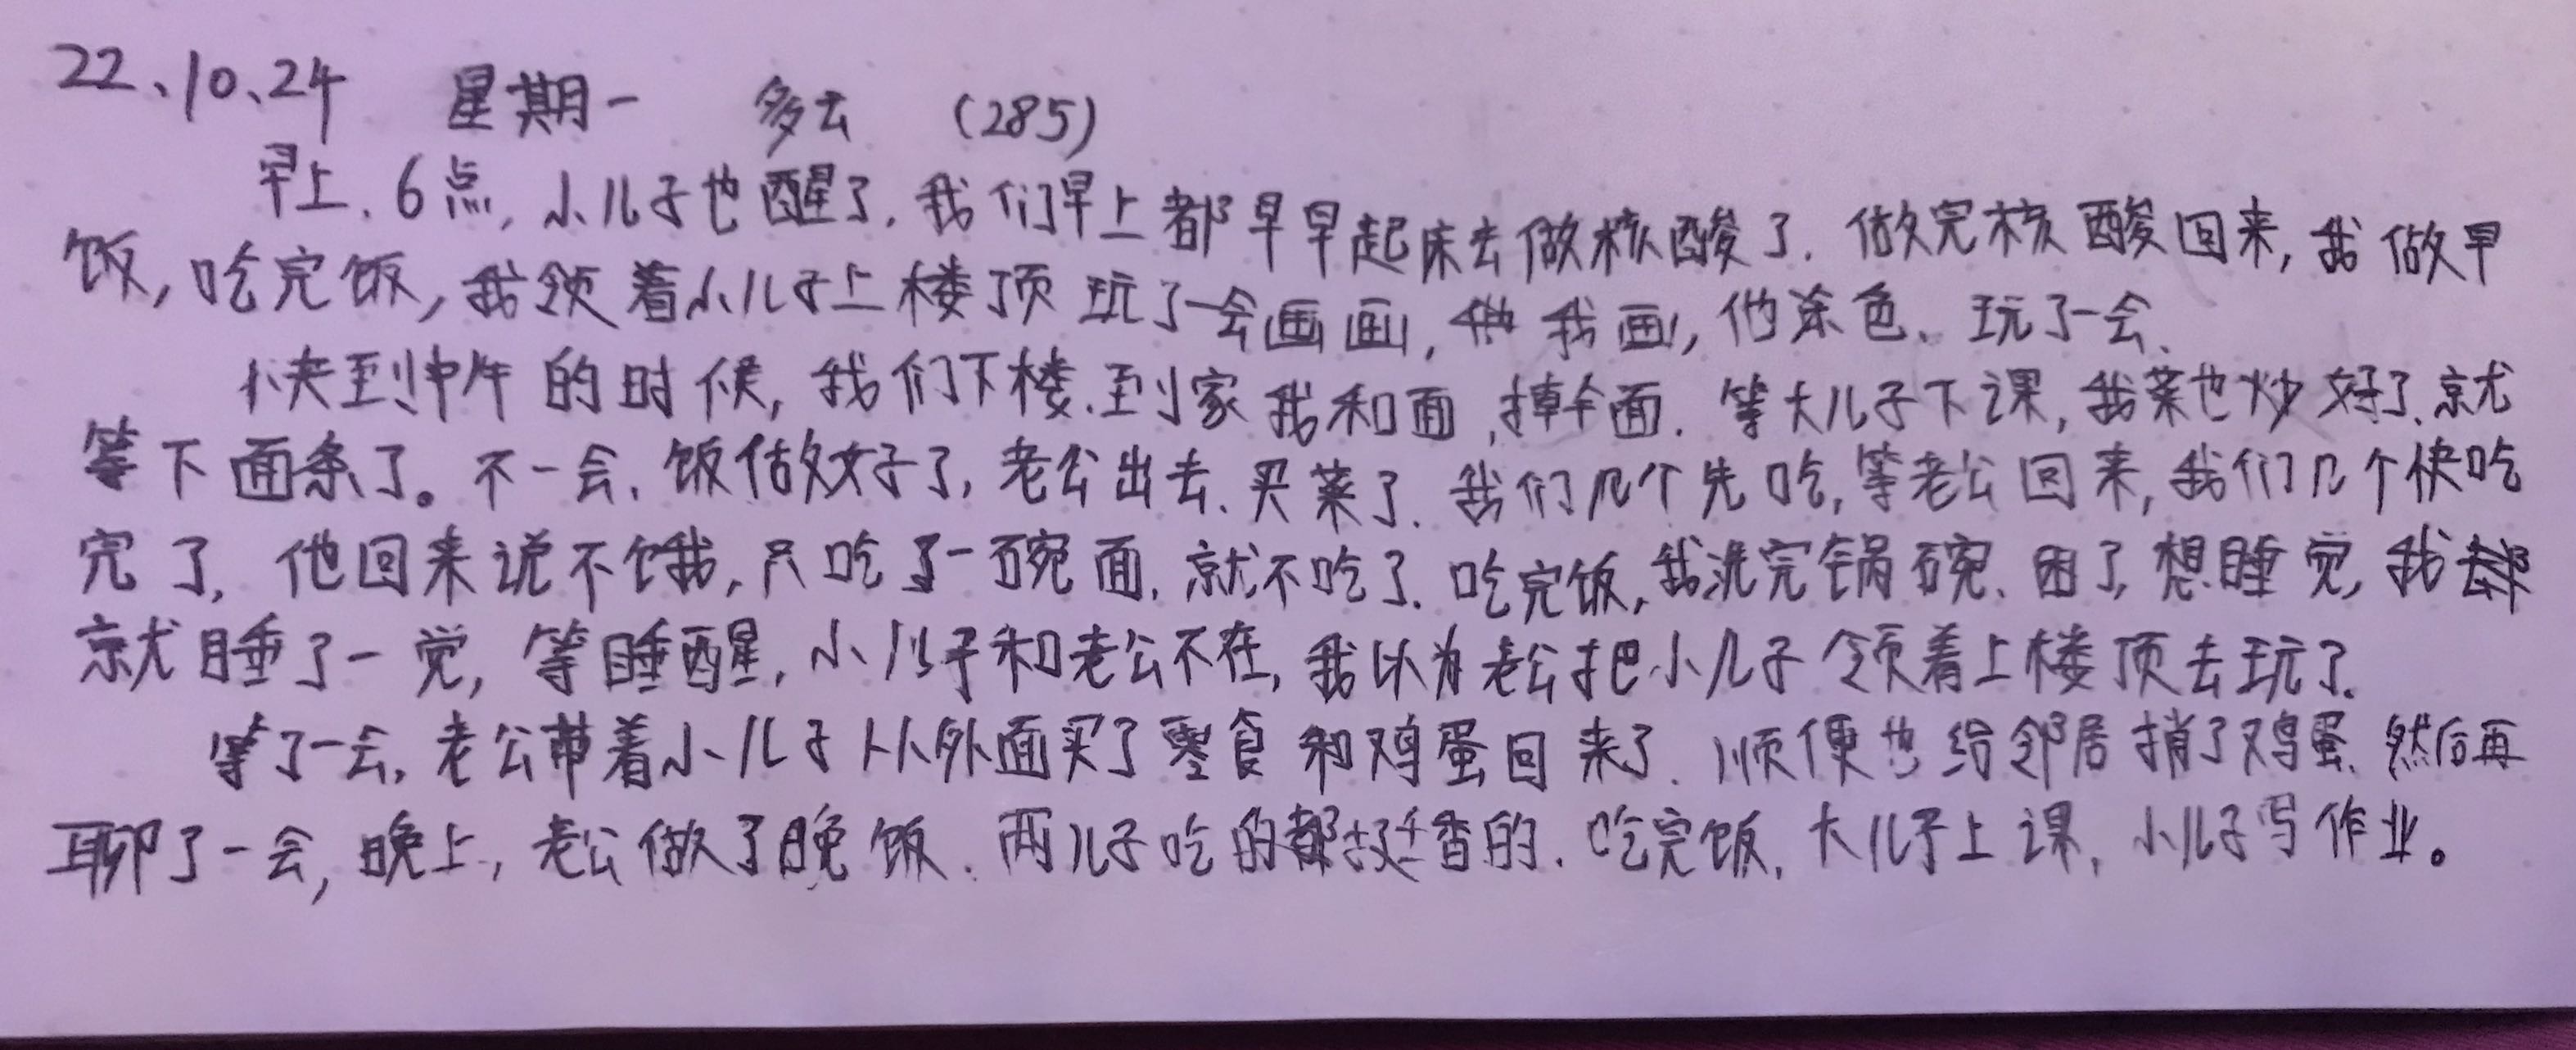 22、10、24 星期一 多云 (285)
早上、6点,小儿子也醒了,我们早上都早早起床去做核酸了.做完核酸回来,我做早
饭,吃完饭,我领着小儿子上楼顶玩了一会画画,我画,他涂色、玩了一会、
快到中午的时候,我们下楼、到家我和面,擀面.等大儿子下课,我菜也炒好了、就
等下面条了。不一会、饭做好了,老公出去、买菜了.我们几个先吃,等老公回来,我们几个快吃
完了,他回来说不饿,只吃了一碗面、就不吃了.吃完饭,我洗完锅碗、困了,想睡觉,我
就睡了一觉,等睡醒,小儿子和老公不在,我以为老公把小儿子领着上楼顶去玩了.
等了一会,老公带着小儿子从外面买了零食和鸡蛋回来了.顺便也给邻居捎了鸡蛋、然后再
聊了一会,晚上,老公做了晚饭、两儿子吃的都挺香的、吃完饭,大儿子上课,小儿子写作业。